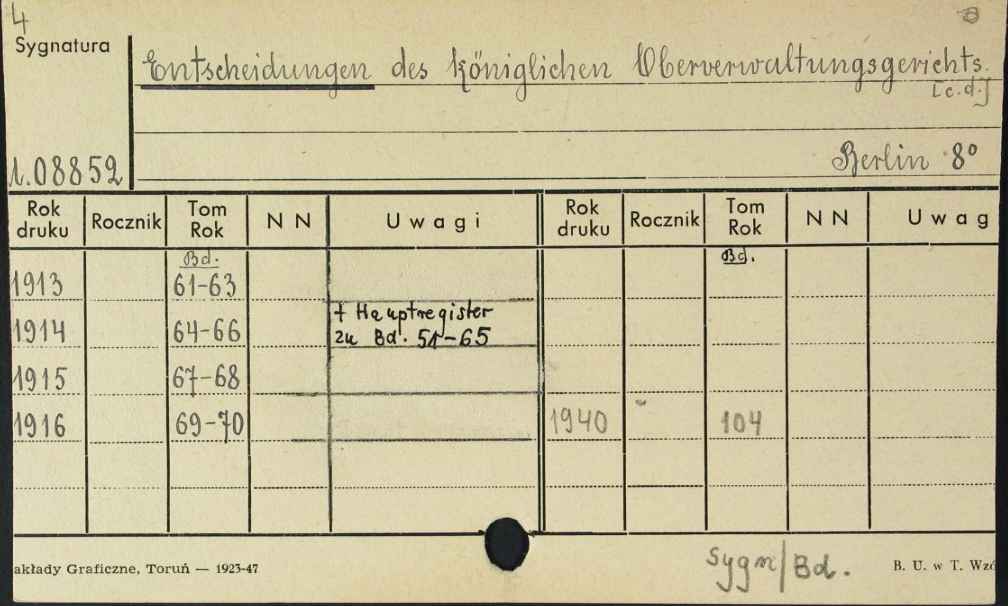 4
Sygnatura
Entscheidungen des königlichen Oberverwaltungsgerichts.
[c.d.]
Berlin 8°
1.08852
Rok druku Rocznik Tom Rok N N Uwagi Rok druku Rocznik Tom Rok N N Uwag
Bd. Bd.
1913 61-63
1914 64-66 + Hauptregister zu Bd. 51-65
1915 67-68
1916 69-70 1940 104
akłady Graficzne, Toruń — 1923-47
sygn/Bd.
B. U. w T. Wzó